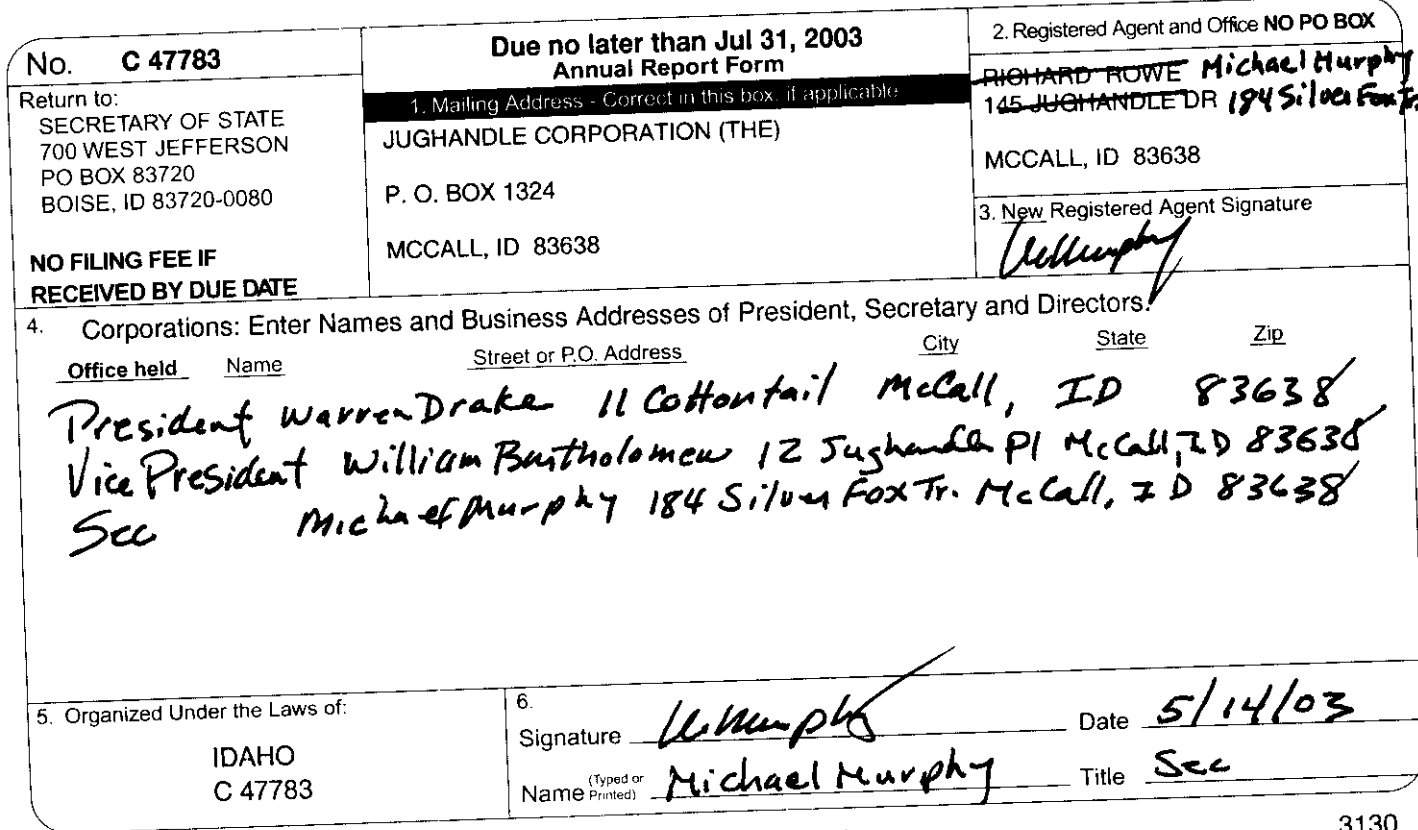 No. C 47783
Return to:
SECRETARY OF STATE
700 WEST JEFFERSON
PO BOX 83720
BOISE, ID 83720-0080
NO FILING FEE IF
RECEIVED BY DUE DATE
Due no later than Jul 31, 2003
Annual Report Form
1. Mailing Address - Correct in this box, if applicable
JUGHANDLE CORPORATION (THE)
P. O. BOX 1324
MCCALL, ID 83638
2. Registered Agent and Office NO PO BOX
RICHARD ROWE Michael Murphy
145 JUGHANDLE DR 184 Silver Fox Tr.
MCCALL, ID 83638
3. New Registered Agent Signature
4. Corporations: Enter Names and Business Addresses of President, Secretary and Directors.
Office held Name Street or P.O. Address City State Zip
President Warren Drake 11 Cottontail McCall, ID 83638
Vice President William Bartholomew 12 Jughandle Pl McCall, ID 83638
Sec Michael Murphy 184 Silver Fox Tr. McCall, ID 83638
5. Organized Under the Laws of:
IDAHO
C 47783
6.
Signature Date 5/14/03
Name (Typed or Printed) Michael Murphy Title Sec
3130